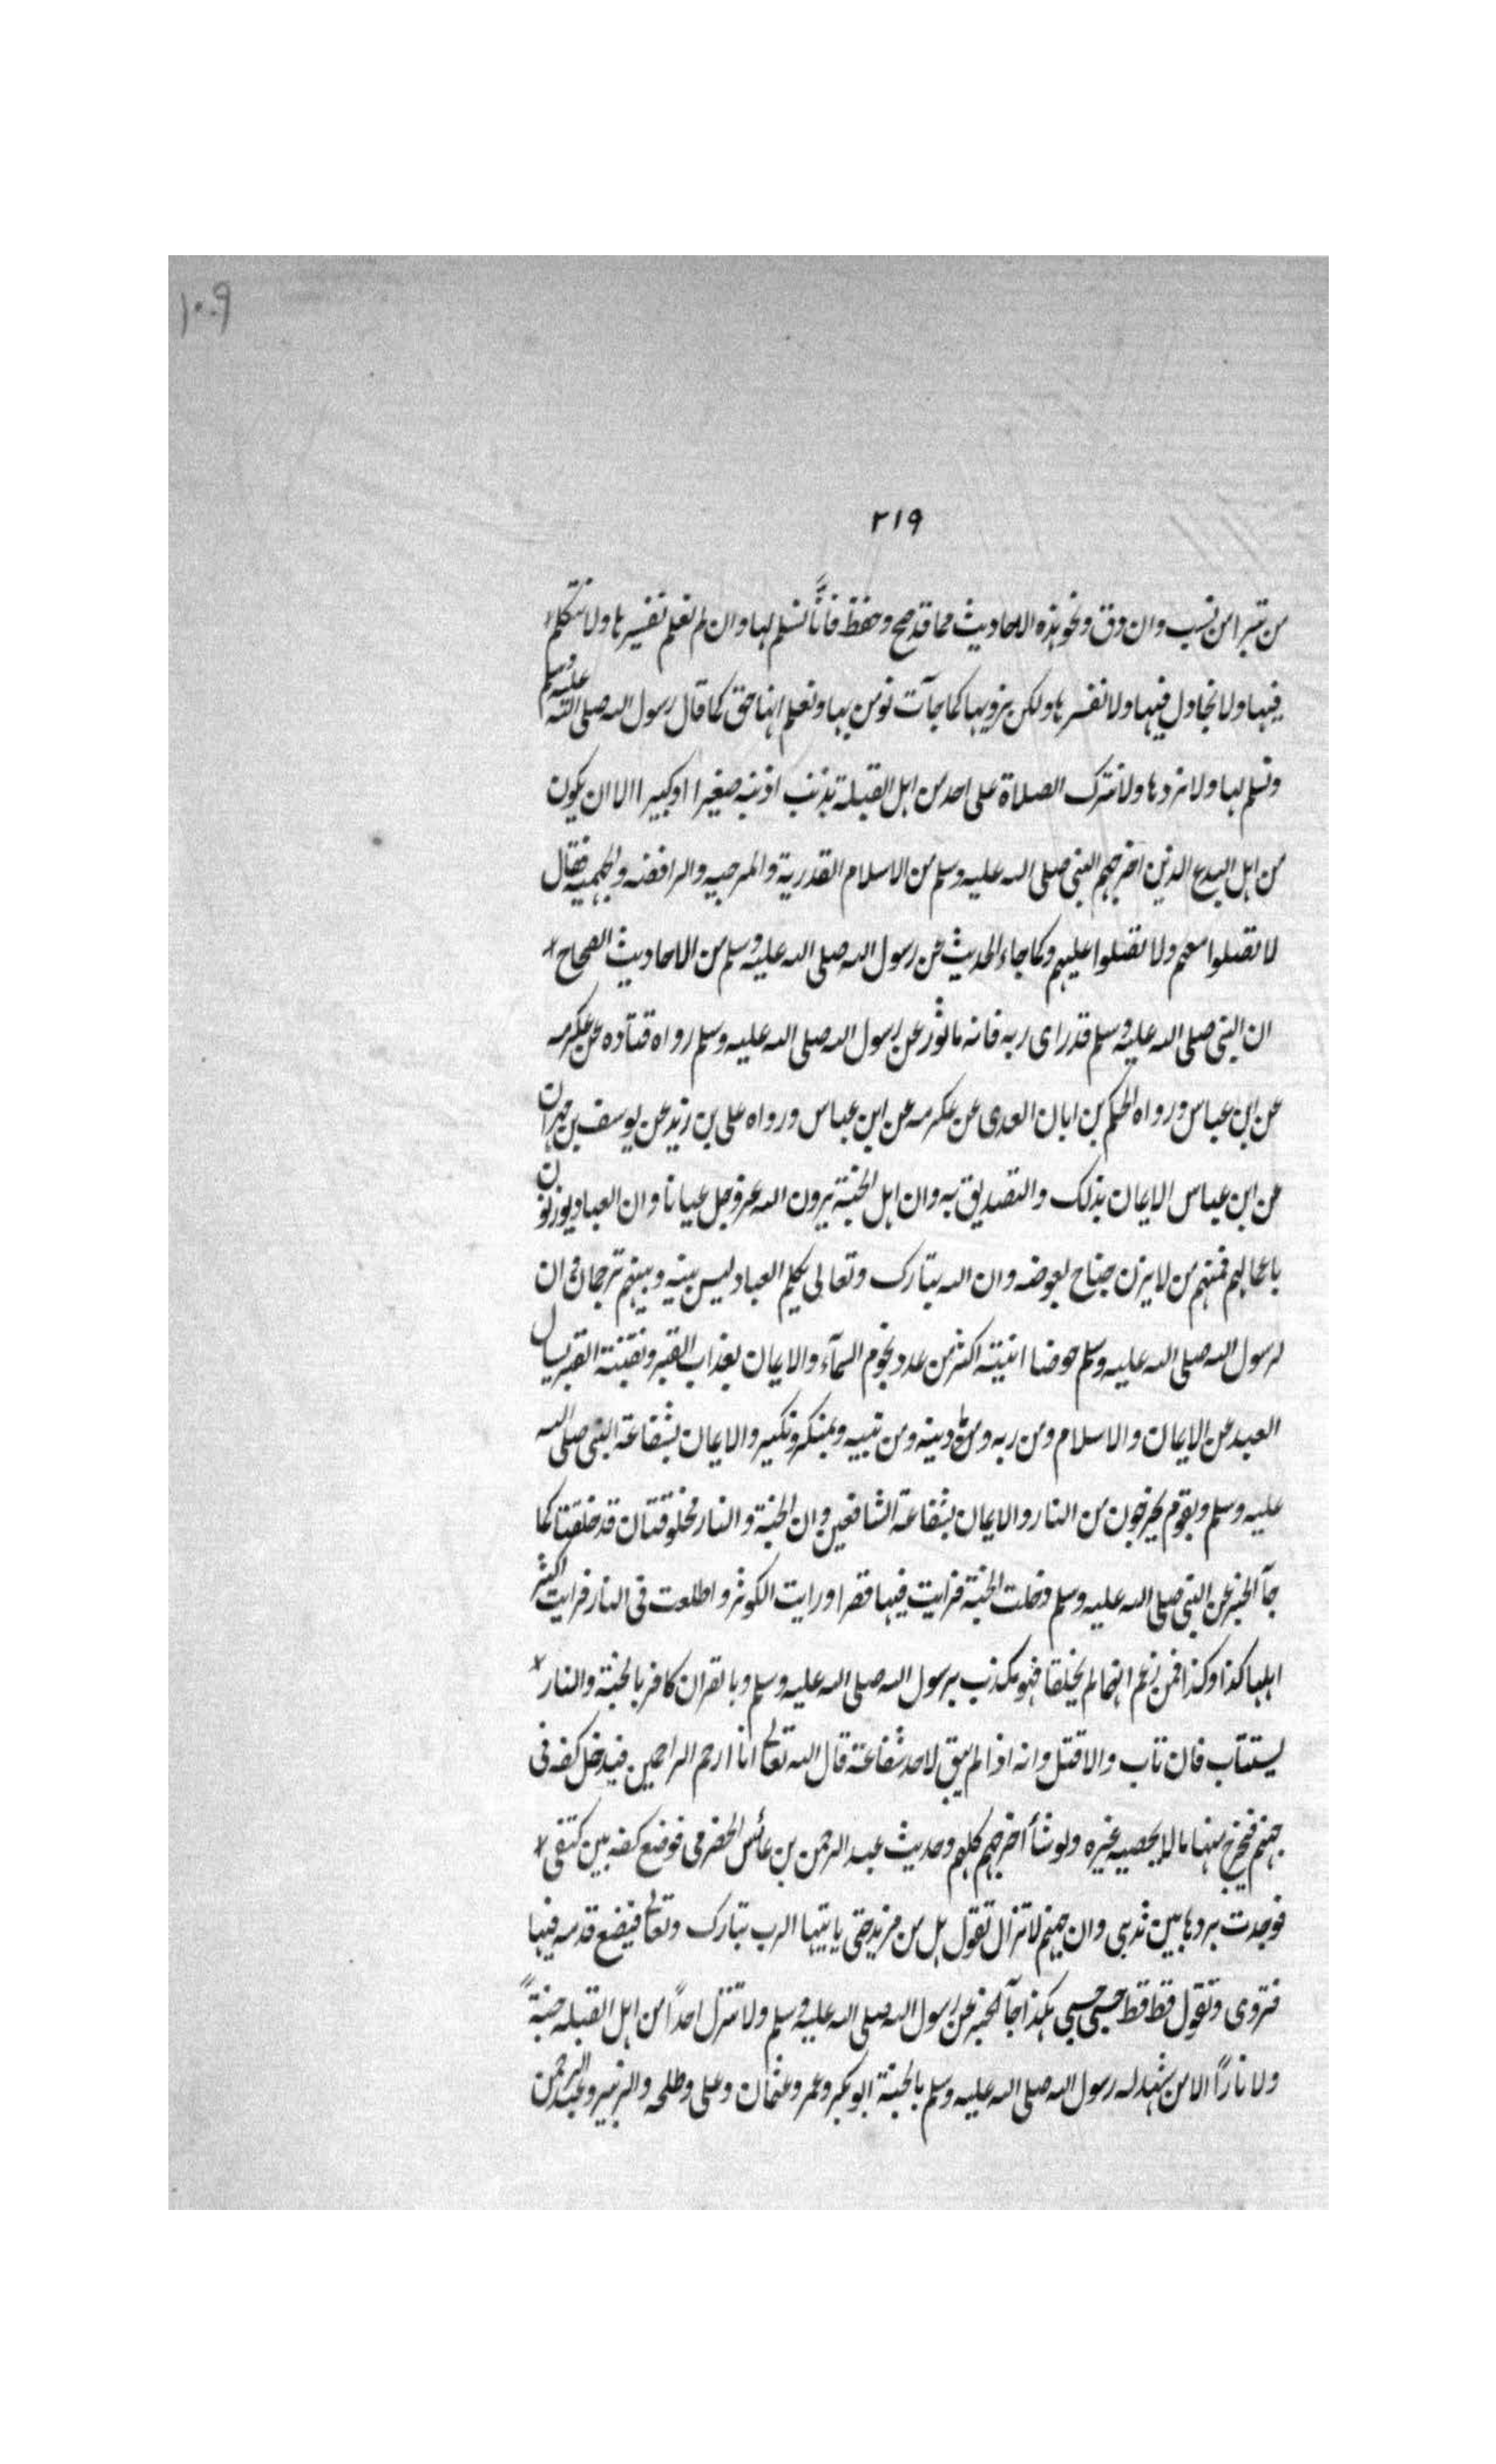 ١٠٩
٢١٩
من تبرا من نسب وان دق ونحو هذه الاحاديث مما قد صح وحفظ فانّا نسلم لها وان لم نعلم تفسيرها ولا نتكلم
فيها ولا نجادل فيها ولا نفسرها ولكن نرويها كما جآت نومن بها ونعلم انها حق كما قال رسول الله صلى الله عليه وسلم
ونسلم لها ولا نردها ولا نترك الصلاة على احد من اهل القبلة بذنب اذنبه صغيرا او كبيرا الا ان يكون
من اهل البدع الذين اخرجهم النبى صلى الله عليه وسلم من الاسلام القدرية والمرجيه والرافضه والجهميه فقال
لا تصلوا معهم ولا تصلوا عليهم وكما جاء الحديث عن رسول الله صلى الله عليه وسلم من الاحاديث الصحاح
ان النبى صلى الله عليه وسلم قد راى ربه فانه ماثور عن رسول الله صلى الله عليه وسلم رواه قتاده عن عكرمه
عن ابن عباس ورواه الحكم بن ابان العدى عن عكرمه عن ابن عباس ورواه على بن زيد عن يوسف بن مهران
عن ابن عباس الايمان بذلك والتصديق به وان اهل الجنة يرون الله عز وجل عيانا وان العباد يوزنون
باعمالهم فمنهم من لا يزن جناح بعوضه وان الله تبارك وتعالى يكلم العباد ليس بينه وبينهم ترجمان وان
لرسول الله صلى الله عليه وسلم حوضا انيته اكثر من عدد نجوم السمآء والايمان بعذاب القبر وبفتنة القبر يسال
العبد عن الايمان والاسلام ومن ربه ومن دينه ومن نبيه وبمنكر ونكير والايمان بشفاعة النبى صلى الله
عليه وسلم وبقوم يخرجون من النار والايمان بشفاعة الشافعين وان الجنة والنار مخلوقتان قد خلقتا كما
جآ الخبر عن النبى صلى الله عليه وسلم دخلت الجنة فرايت فيها قصرا ورايت الكوثر واطلعت فى النار فرايت اكثر
اهلها كذا وكذا فمن زعم انهما لم يخلقا فهو مكذب برسول الله صلى الله عليه وسلم وبالقران كافر بالجنة والنار
يستتاب فان تاب والا قتل وانه اذا لم يبق لاحد شفاعة قال الله تعالى انا ارحم الراحمين فيدخل كفه فى
جهنم فيخرج منها ما لا يحصيه غيره ولو شأ اخرجهم كلهم وحديث عبد الرحمن بن عائش الحضرمى فوضع كفه بين كتفى
فوجدت بردها بين ثديى وان جهنم لا تزال تقول هل من مزيد حتى ياتيها الرب تبارك وتعالى فيضع قدمه فيها
فتزوى وتقول قط قط حسبى حسبى هكذا جآ الخبر عن رسول الله صلى الله عليه وسلم ولا ننزل احدًا من اهل القبله جنةً
ولا نارًا الا من شهد له رسول الله صلى الله عليه وسلم بالجنة ابو بكر وعمر وعثمان وعلى وطلحه والزبير وعبد الرحمن